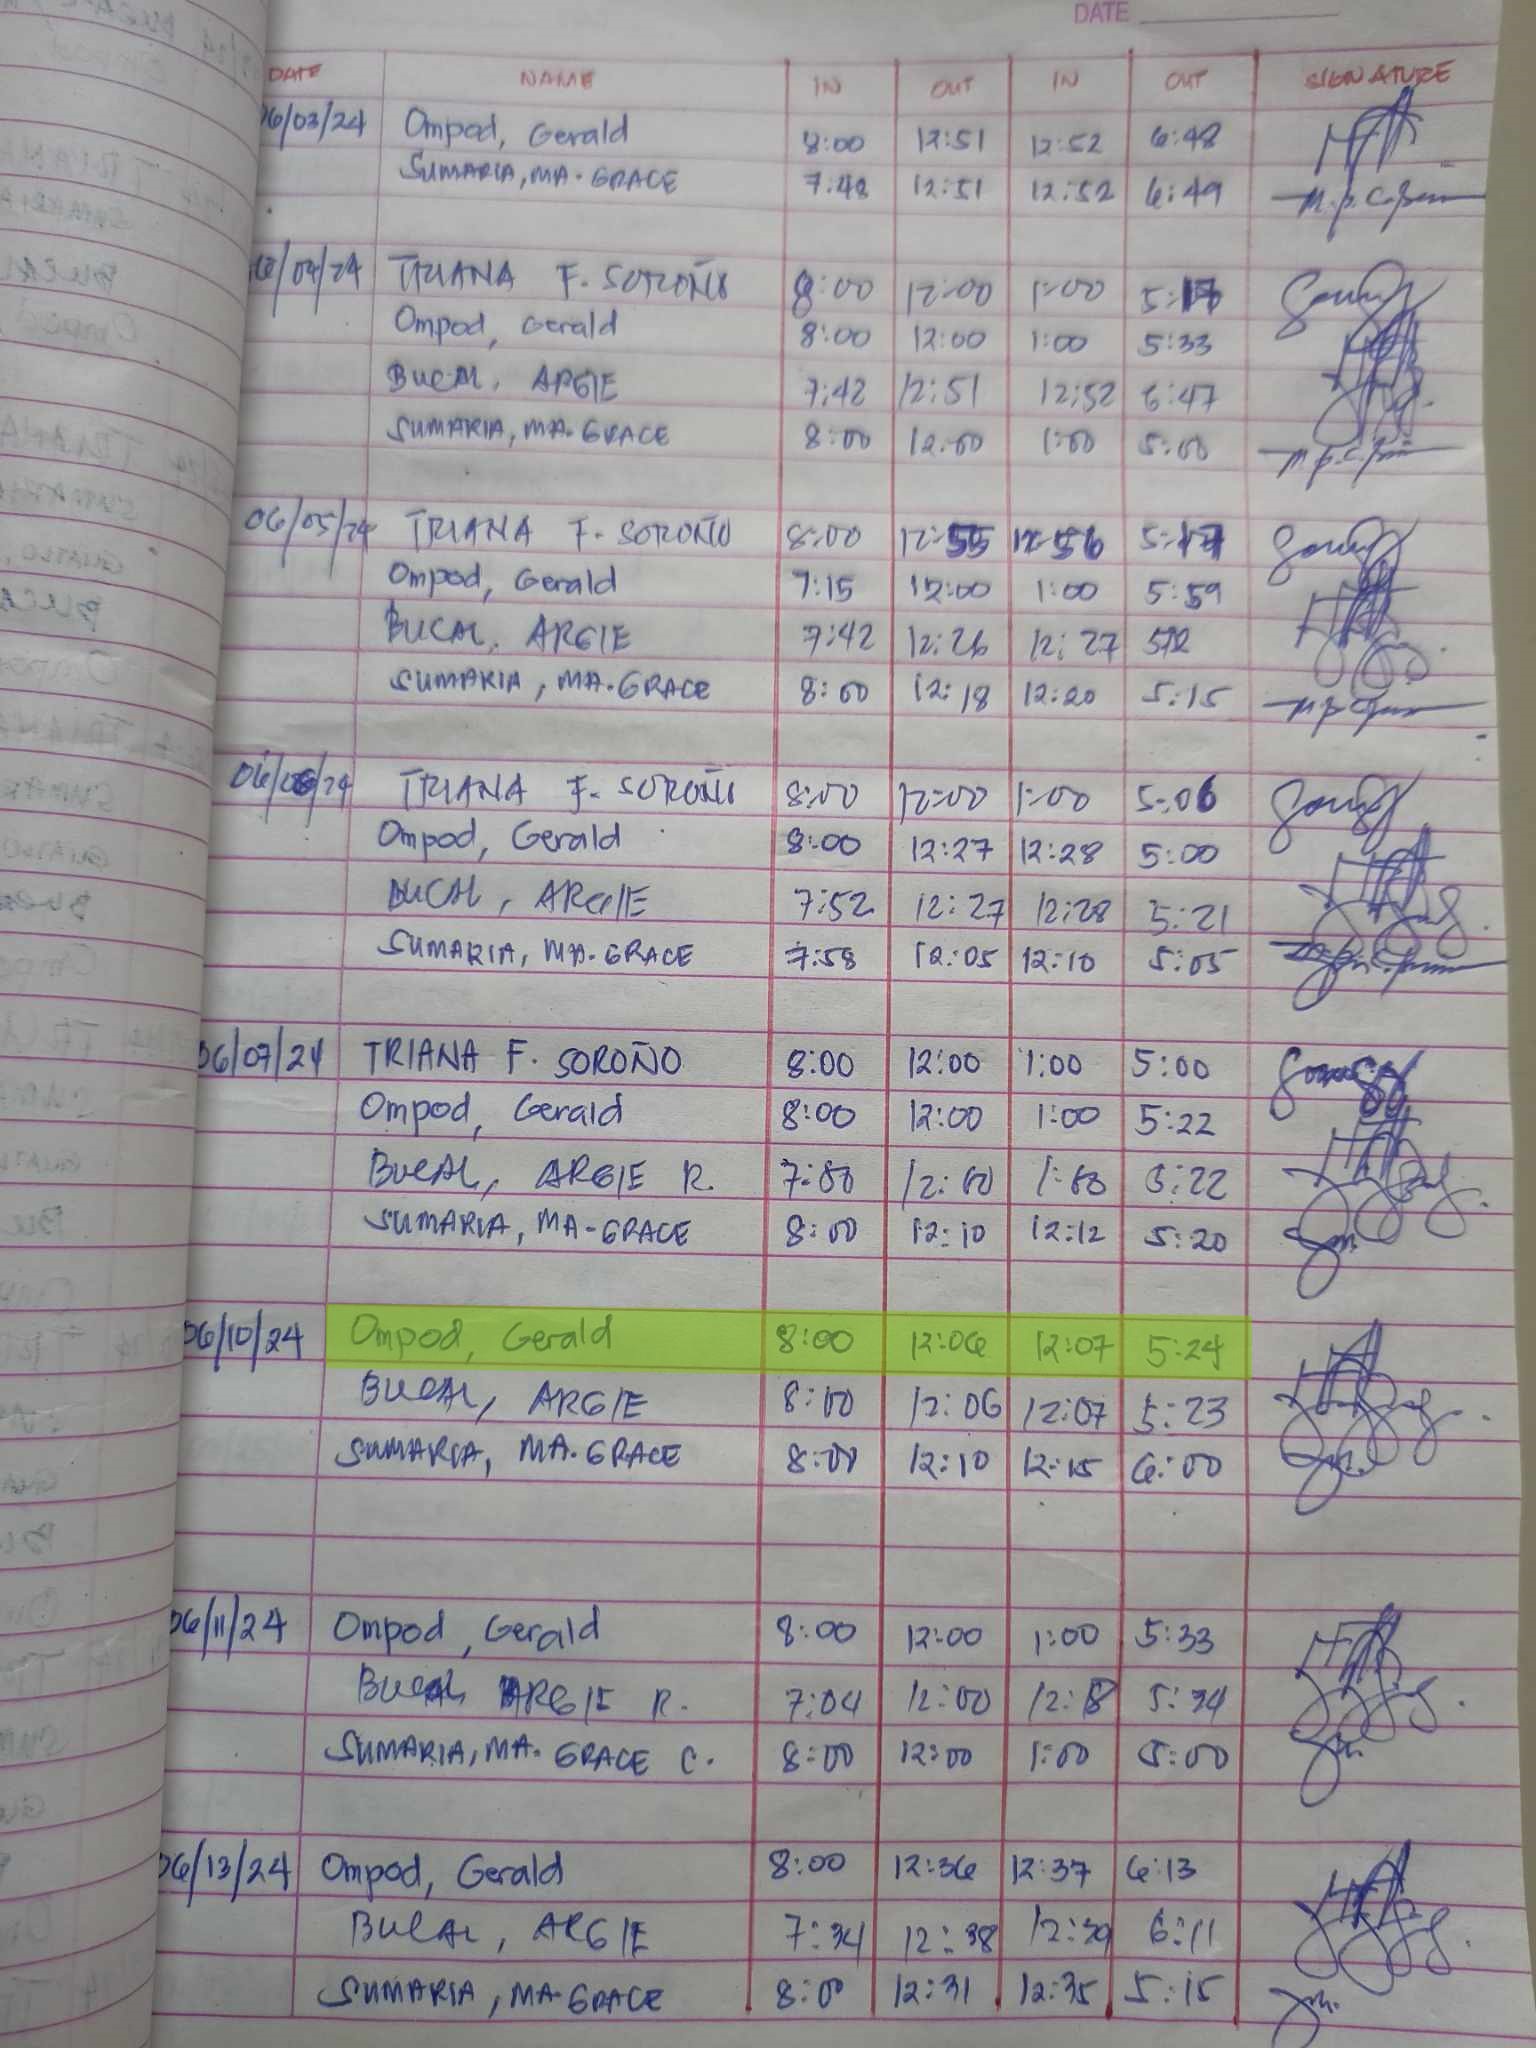 DATE
DATE NAME IN OUT IN OUT SIGNATURE
06/03/24 Ompod, Gerald 8:00 12:51 12:52 6:48
SUMARIA, MA. GRACE 7:48 12:51 12:52 6:49
06/04/24 TRIANA F. SOROÑO 8:00 12:00 1:00
Ompod, Gerald 8:00 12:00 1:00 5:33
BUCAL, ARGIE 7:42 12:51 12:52 6:47
SUMARIA, MA. GRACE 8:00 12:00 1:00 5:00
06/05/24 TRIANA F. SOROÑO 8:00 12:55 12:56
Ompod, Gerald 7:15 12:00 1:00 5:59
BUCAL, ARGIE 7:42 12:26 12:27
SUMARIA, MA. GRACE 8:00 12:18 12:20 5:15
06/06/24 TRIANA F. SOROÑO 8:00 12:00 1:00 5:06
Ompod, Gerald 8:00 12:27 12:28 5:00
BUCAL, ARGIE 7:52 12:27 12:28 5:21
SUMARIA, MA. GRACE 7:58 12:05 12:10 5:05
06/07/24 TRIANA F. SOROÑO 8:00 12:00 1:00 5:00
Ompod, Gerald 8:00 12:00 1:00 5:22
BUCAL, ARGIE R. 12:00 1:00 5:22
SUMARIA, MA-GRACE 8:00 12:10 12:12 5:20
06/10/24 Ompod, Gerald 8:00 12:06 12:07 5:24
BUCAL, ARGIE 8:00 12:06 12:07 5:23
SUMARIA, MA. GRACE 8:00 12:10 12:15 6:00
06/11/24 Ompod, Gerald 8:00 12:00 1:00 5:33
BUCAL ARGIE R. 7:04 12:00 5:34
SUMARIA, MA. GRACE C. 8:00 12:00 1:00 5:00
06/13/24 Ompod, Gerald 8:00 12:36 12:37 6:13
BUCAL, ARGIE 7:34 12:38 12:39 6:11
SUMARIA, MA-GRACE 8:00 12:31 12:35 5:15